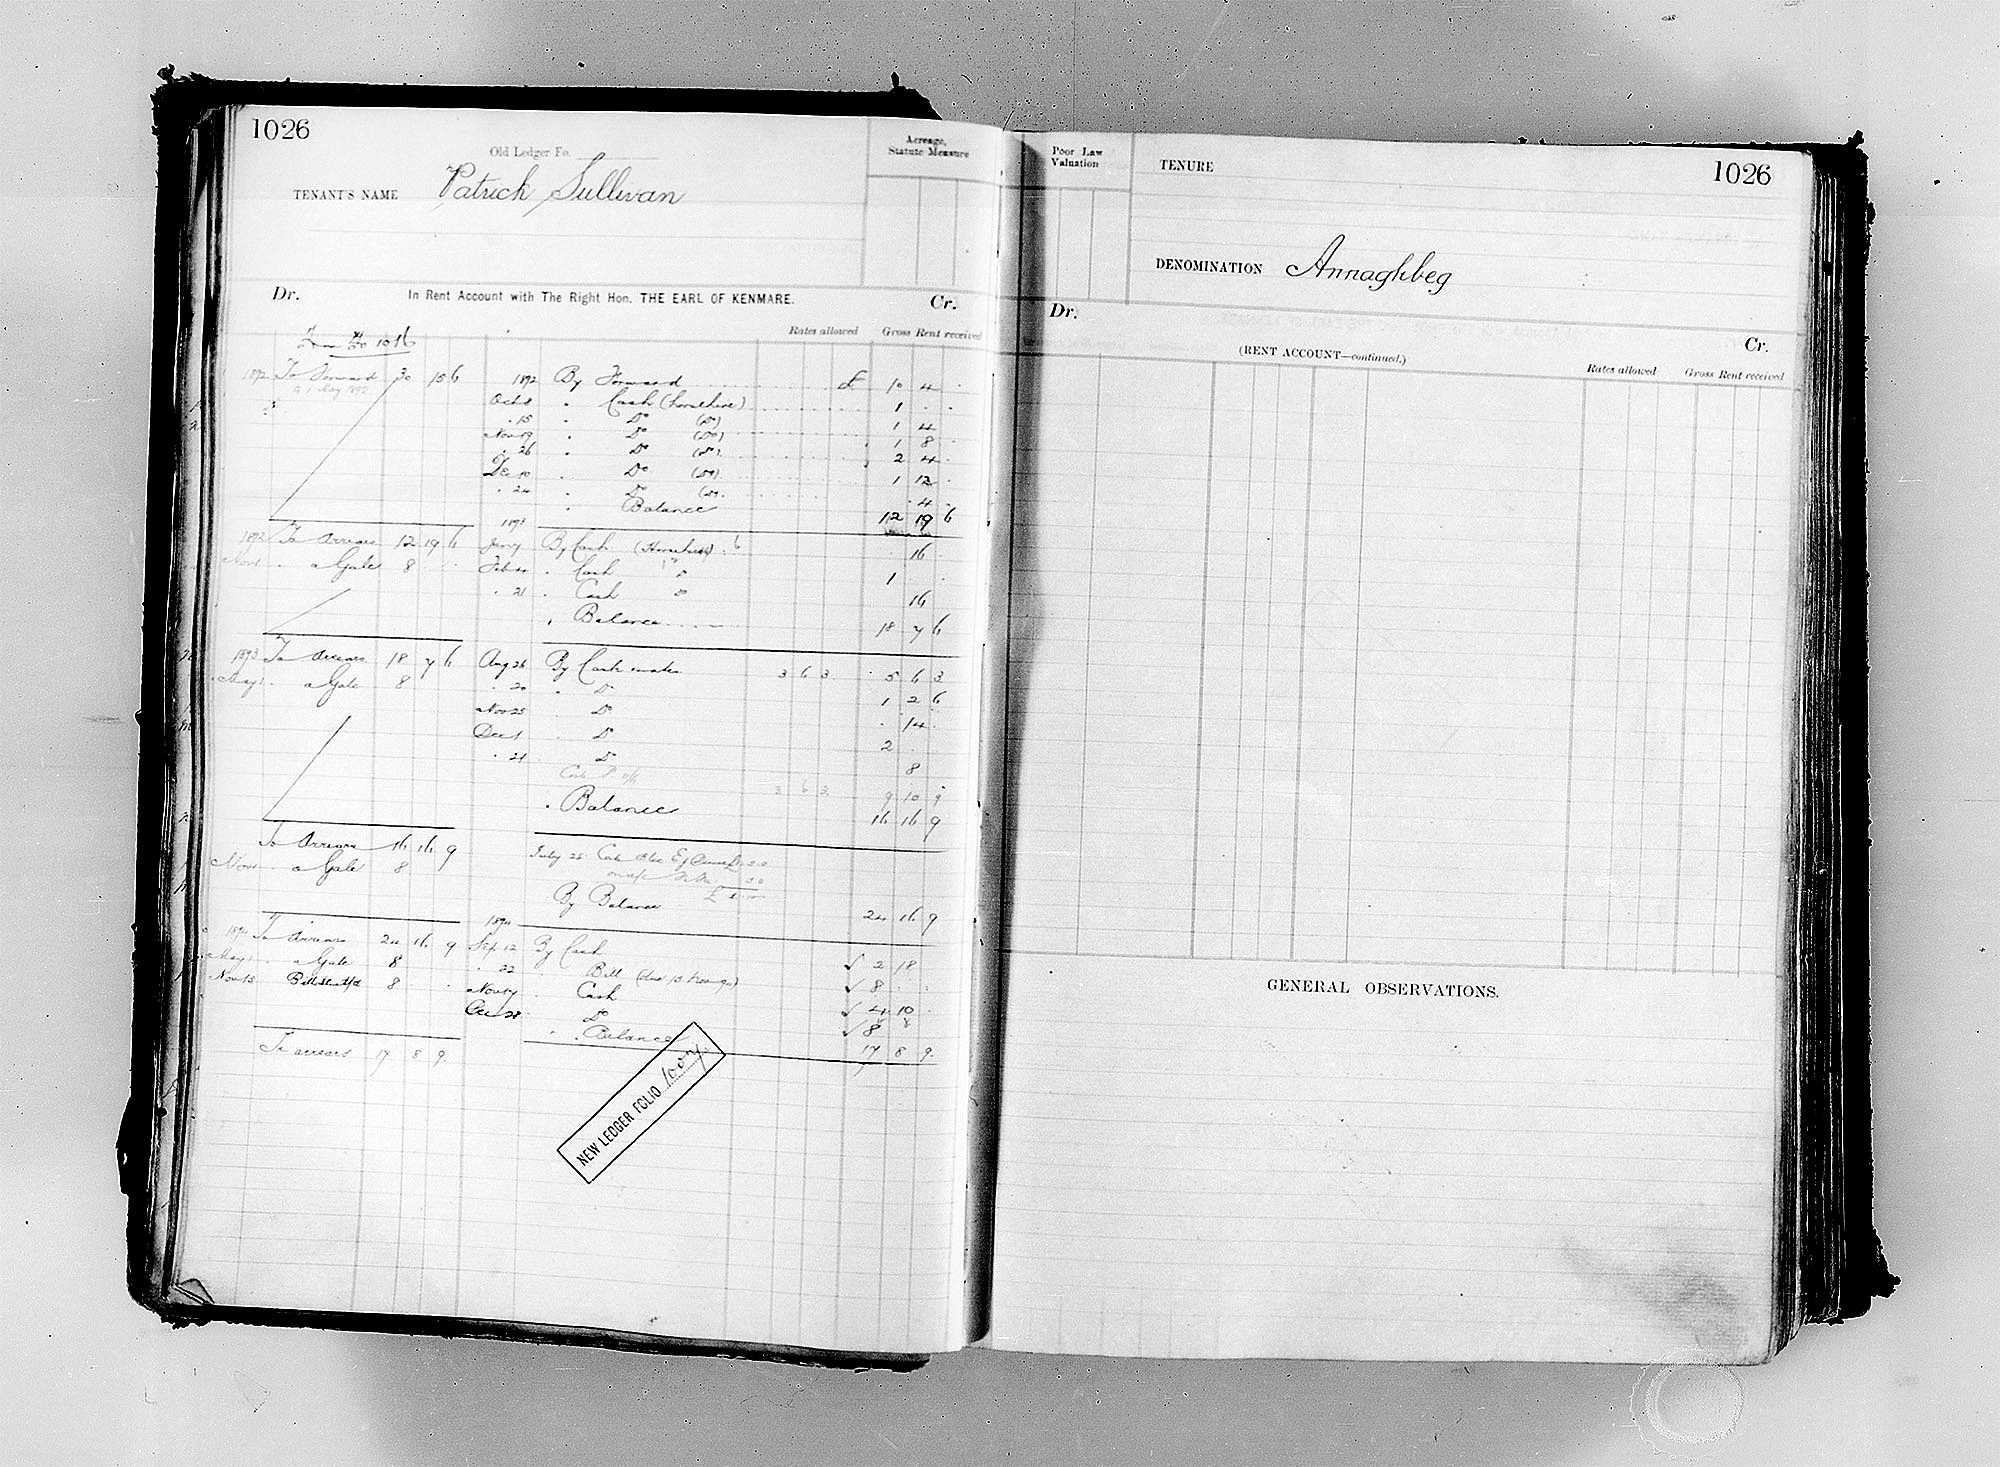 1026
Old Ledger Fo.
Acreage,
Statute Measure
TENANT'S NAME Patrick Sullivan
Dr. In Rent Account with The Right Hon. THE EARL OF KENMARE. Cr.
Rates allowed Gross Rent received
1016
1892 To Forward 30 15 6 1892 By Forward £ 10 4
to 1 May 1892
Oct 8 " Cash (horsehire) 1 . .
. 15 " Do (Do) 1 4
Nov 19 " Do (Do) 1 8
. 26 " Do (Do) 2 4
Dec 10 " Do (Do) 1 12
. 24 " Do (Do) . 4
" Balance 12 19 6
1893
1892 To Arrears 12 19 6 By Cash (Horsehire) 16
Nov 1 . a Gale 8 Feb . Cash Do 1
. 21 . Cash Do 16
. Balance 18 7 6
1893 To Arrears 18 7 6 Aug 26 By Cash 3 6 3 5 6 3
May 1 . a Gale 8 . Do 1 2 6
Nov 25 Do . 14
Dec Do 2
. Do 8
3 6 3 9 10 9
. Balance 16 16 9
To Arrears 16 16 9 July Cash
Nov a Gale 8
By Balance 24 16 9
1894
1894 To Arrears 24 16 9 Sep 12 By Cash √ 2 18
May 1 . a Gale 8 . 22 . Bill √ 8
Nov 15 8 Nov 17 . Cash √ 4 10
Dec 28 Do √ 8
. Balance 17 8 9
To arrears 17 8 9
NEW LEDGER FOLIO 1007
Poor Law
Valuation
TENURE
1026
DENOMINATION Annaghbeg
Dr. (RENT ACCOUNT—continued.) Cr.
Rates allowed Gross Rent received
GENERAL OBSERVATIONS.